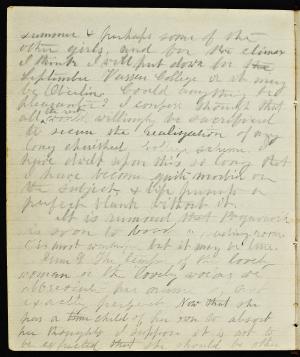 summer & perhaps some of the
other girls, and for the climax
I think I will put down for the
September Vassar College or it may
be Oberlin. Could anything be
pleasanter? I confess though that
all would willingly be sacrificed
to secure the realization of my
long cherished scheme. I
have dwelt upon this so long that
I have become quite morbid on
the subject & life proves a
perfect blank without it.
It is rumored that
is soon to
is most but it may be true.
June 9 The of the lovely
woman or the lovely we
exactly perfect. Now that she
has a child of her own to absorb
her thoughts I suppose it is not to
be expected that she should be other